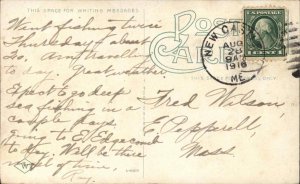 THIS SPACE FOR WRITING MESSAGES
POST CARD
Went fishing twice
Thursday + f about
20. Am travelling
to day. Great weather
Expect to go deep
sea fishing in a
couple days
Going to E. Edgecomb
to day. Will be there
most of time.
Ray
NEW
AUG
26
9 AM
1916
ME.
1 CENT 1
Fred Wilson,
E. Pepperell
Mass.